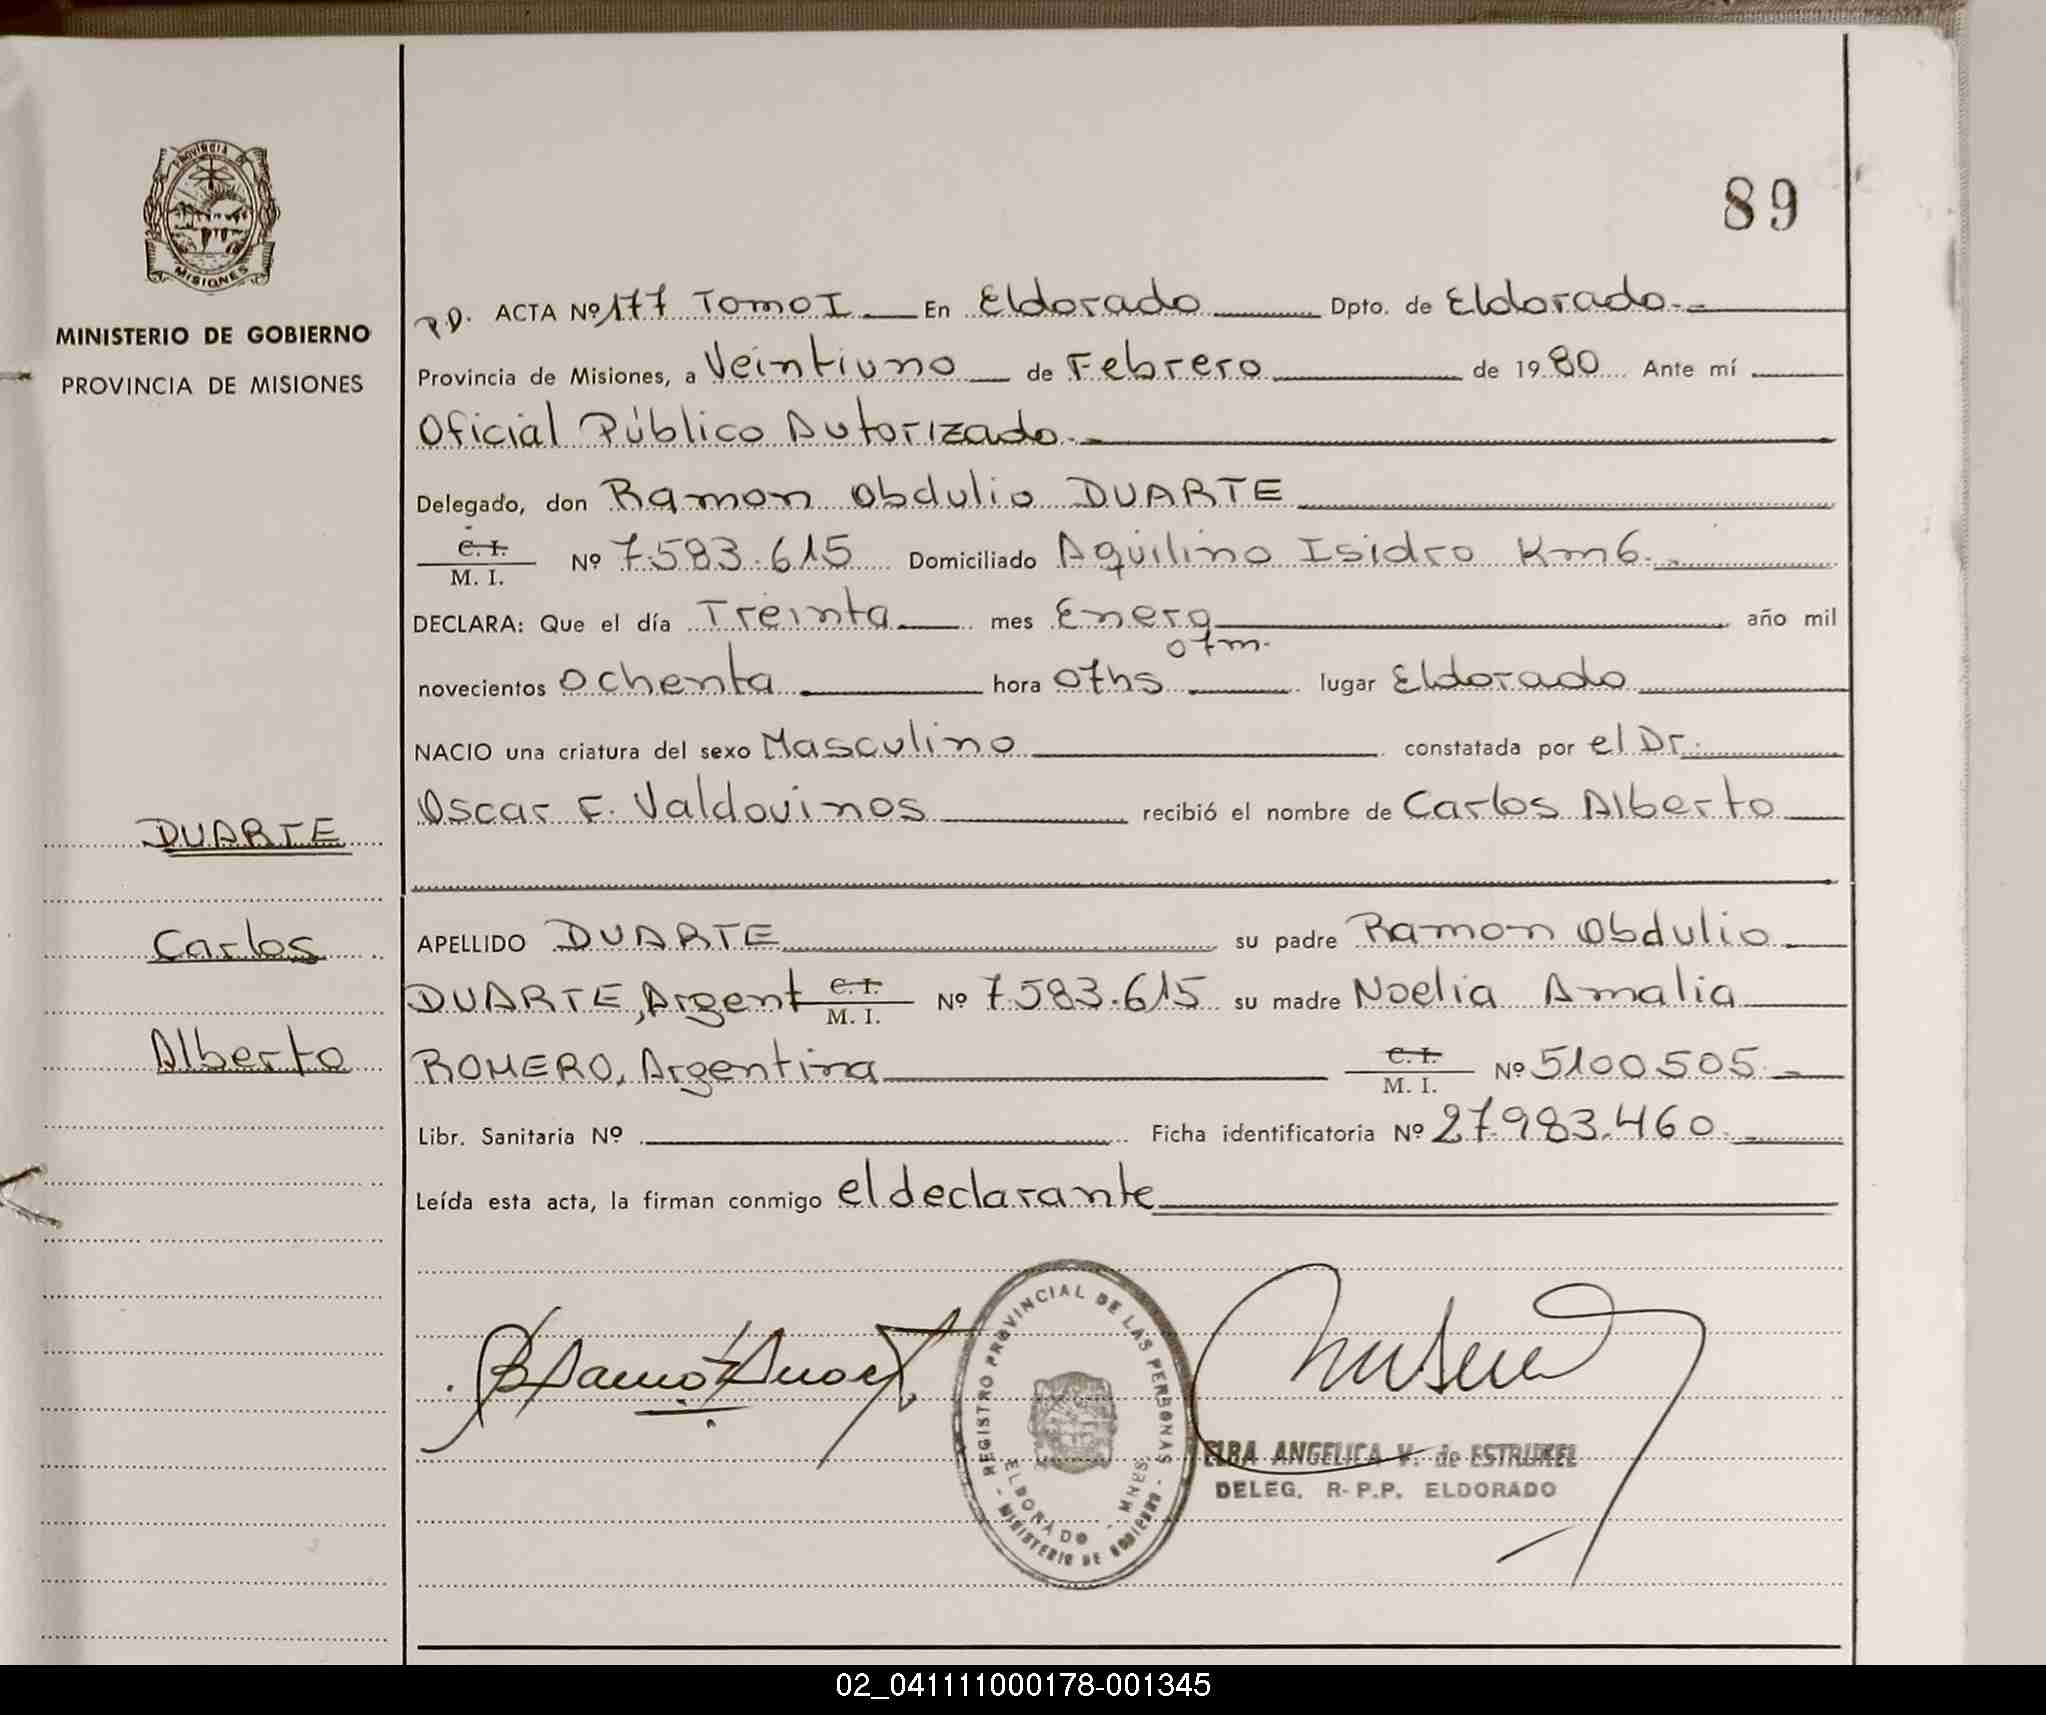 PROVINCIA DE
MISIONES
MINISTERIO DE GOBIERNO
PROVINCIA DE MISIONES
DUARTE
Carlos
Alberto
89
P.D. ACTA Nº 177 Tomo I En Eldorado Dpto. de Eldorado.-
Provincia de Misiones, a Veintiuno de Febrero de 1980 Ante mí
Oficial Público Autorizado.-
Delegado, don Ramon Obdulio DUARTE
C. I. M. I. Nº 7.583.615 Domiciliado Aquilino Isidro Km6.-
DECLARA: Que el día Treinta mes Enero año mil
novecientos Ochenta hora 07hs 07m. lugar Eldorado
NACIO una criatura del sexo Masculino constatada por el Dr.
Oscar F. Valdovinos recibió el nombre de Carlos Alberto
APELLIDO DUARTE su padre Ramon Obdulio
DUARTE, Argent C. I. M. I. Nº 7.583.615 su madre Noelia Amalia
ROMERO, Argentina C. I. M. I. Nº 5100505.-
Libr. Sanitaria Nº Ficha identificatoria Nº 27.983.460.-
Leída esta acta, la firman conmigo el declarante
REGISTRO PROVINCIAL DE LAS PERSONAS
- MINISTERIO DE GOBIERNO -
ELDORADO - MNES.
ELBA ANGELICA V. de ESTRUKEL
DELEG. R-P.P. ELDORADO
02_041111000178-001345